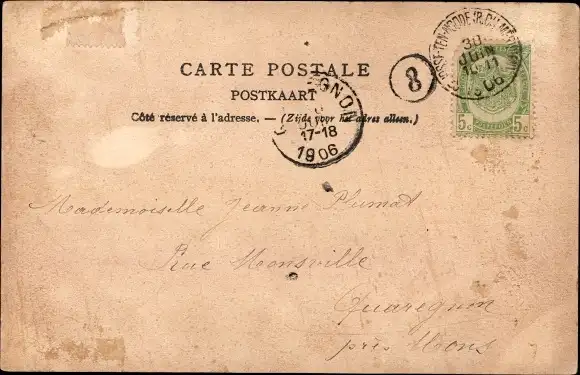 CARTE POSTALE
POSTKAART
Côté réservé à l'adresse. — (Zijde voor het adres alleen.)
8
30
JUIN
10-11
1906
5c 5c
GNON
17-18
1906
Mademoiselle Jeanne Plumat
Rue Monsville
Quaregnon
près Mons